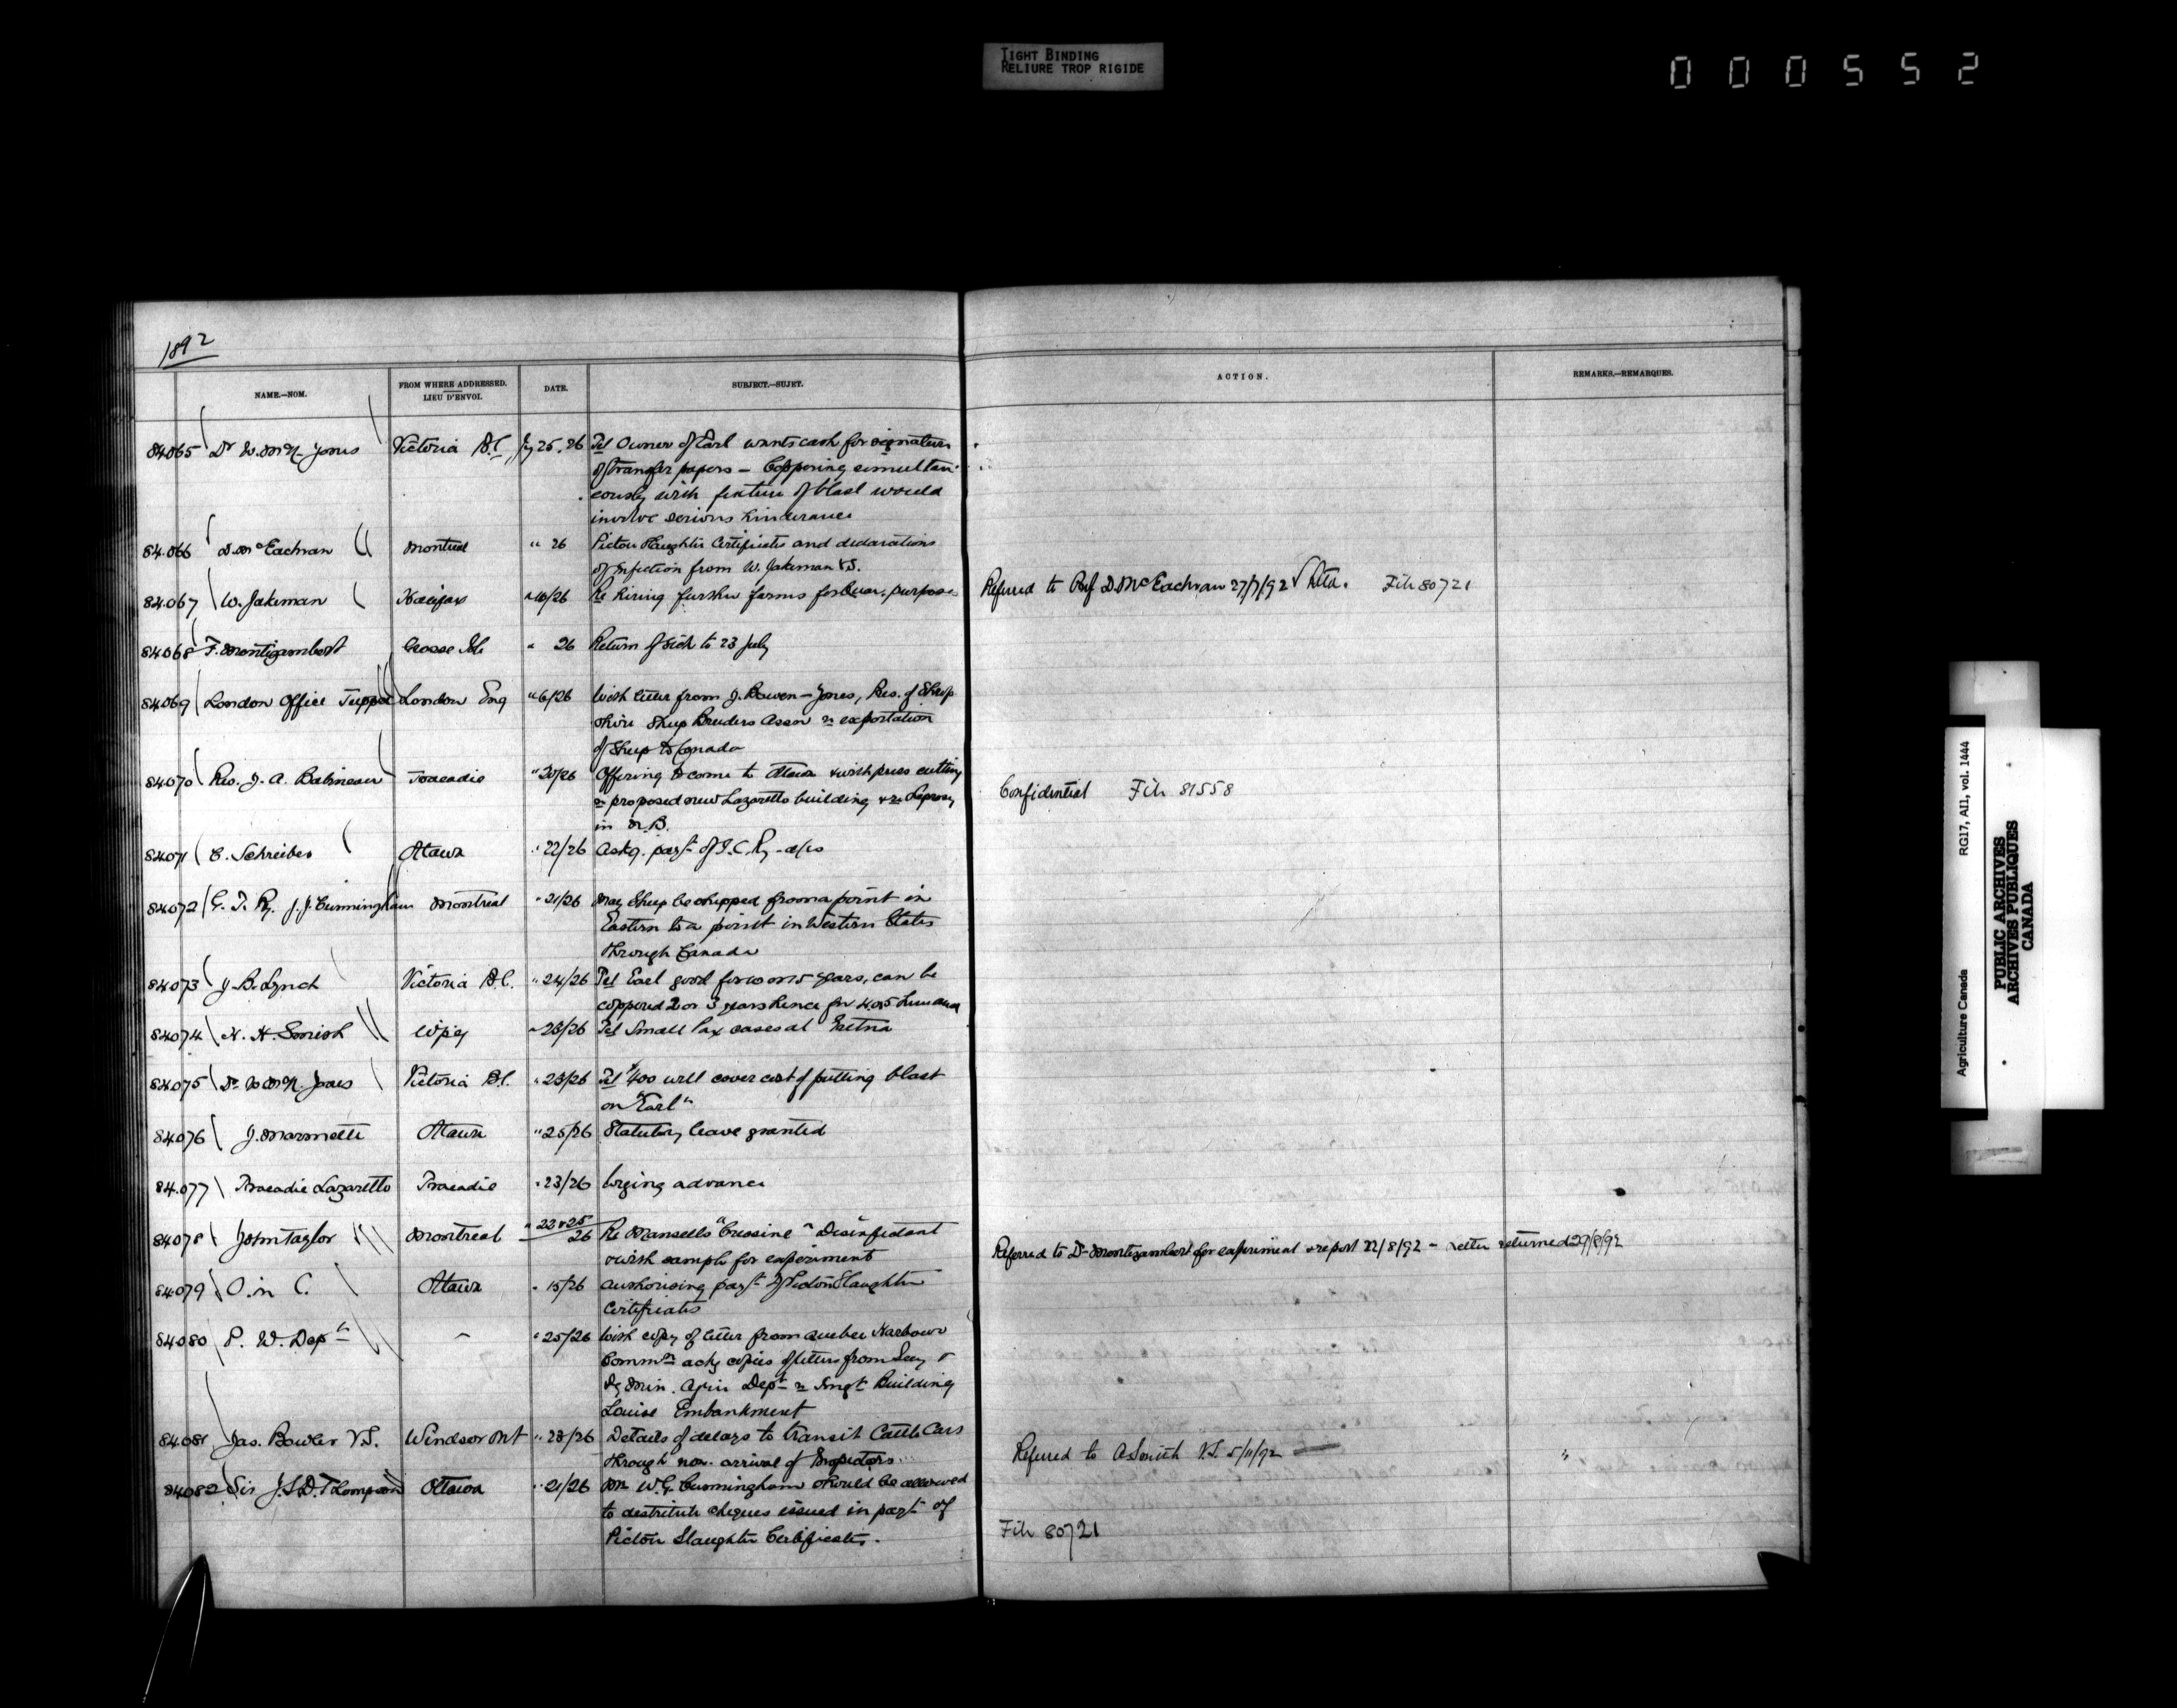 TIGHT BINDING
RELIURE TROP RIGIDE
000552
1892
NAME.—NOM.
FROM WHERE ADDRESSED.
LIEU D'ENVOI.
DATE.
SUBJECT.—SUJET.
ACTION.
REMARKS.—REMARQUES.
84065 Dr W. McN. Jones Victoria B.C. Jy 25.26 Tel Owner of Earl wants cash for signature
of transfer papers — Coppering simultan-
eously with fixture of blast would
involve serious hinderance
84.066 D. McEachran Montreal " 26 Pictou Slaughter Certificates and declarations
of infection from W. Jakeman V.S.
84.067 W. Jakeman Halifax " 10/26 Re hiring further farms for Quar. purposes Referred to Prof D. McEachran 27/7/92 File 80721
84068 F. Montizambert Grosse Isle " 26 Return of sick to 23 July
84.069 London Office Tupper London Eng " 6/26 With letter from J. Bowen-Jones, Pres. of Shrop
shire Sheep Breeders Assn re exportation
of Sheep to Canada
84070 Rev. J. A. Babineau Tracadie " 20/26 Offering to come to Ottawa & with press cutting
re proposed new Lazaretto building & re Leprosy
in N.B.
Confidential File 81558
84071 C. Schreiber Ottawa " 22/26 Askg. payt of I.C.Ry - a/cs
84072 G. T. Ry. J. J. Cunningham Montreal " 21/26 May Sheep be shipped from a point in
Eastern to a point in Western States
through Canada
84073 J. B. Lynch Victoria B.C. " 24/26 Tel Earl good for 10 or 15 years, can be
coppered 2 or 3 years hence for 4 or 5 hundred
84074 H. H. Smith Wpeg " 25/26 Tel Small Pox cases at Gretna
84075 Dr. W. McN. Jones Victoria B.C. " 23/26 Tel $400 will cover cost of putting blast
on "Earl"
84076 J. Marmette Ottawa " 25/26 Statutory leave granted
84.077 Tracadie Lazaretto Tracadie " 23/26 Urging advance
84078 John Taylor Montreal " 22 & 25/26 Re Mansells "Cressine" Disinfectant
& with sample for experiment
Referred to Dr Montizambert for experiment & report 22/8/92 - Letter returned 29/8/92
84079 O. in C. Ottawa " 15/26 Authorising payt of Pictou Slaughter
Certificates
84080 P. W. Dept " " 25/26 With copy of letter from Quebec Harbour
Commn ackg copies of letters from Secy &
Dy Min. Agric Dept re Imgt Building
Louise Embankment
84.081 Jas. Bowler V.S. Windsor Ont " 23/26 Details of delays to transit Cattle Cars
through non. arrival of Inspectors
Referred to A Smith V.S. 5/11/92 "
84082 Sir J. S. D. Thompson Ottawa " 21/26 Mr W. G. Cunningham should be allowed
to destribute cheques issued in payt of
Pictou Slaughter Certificates.
File 80721
Agriculture Canada RG17, AII, vol. 1444
PUBLIC ARCHIVES
ARCHIVES PUBLIQUES
CANADA